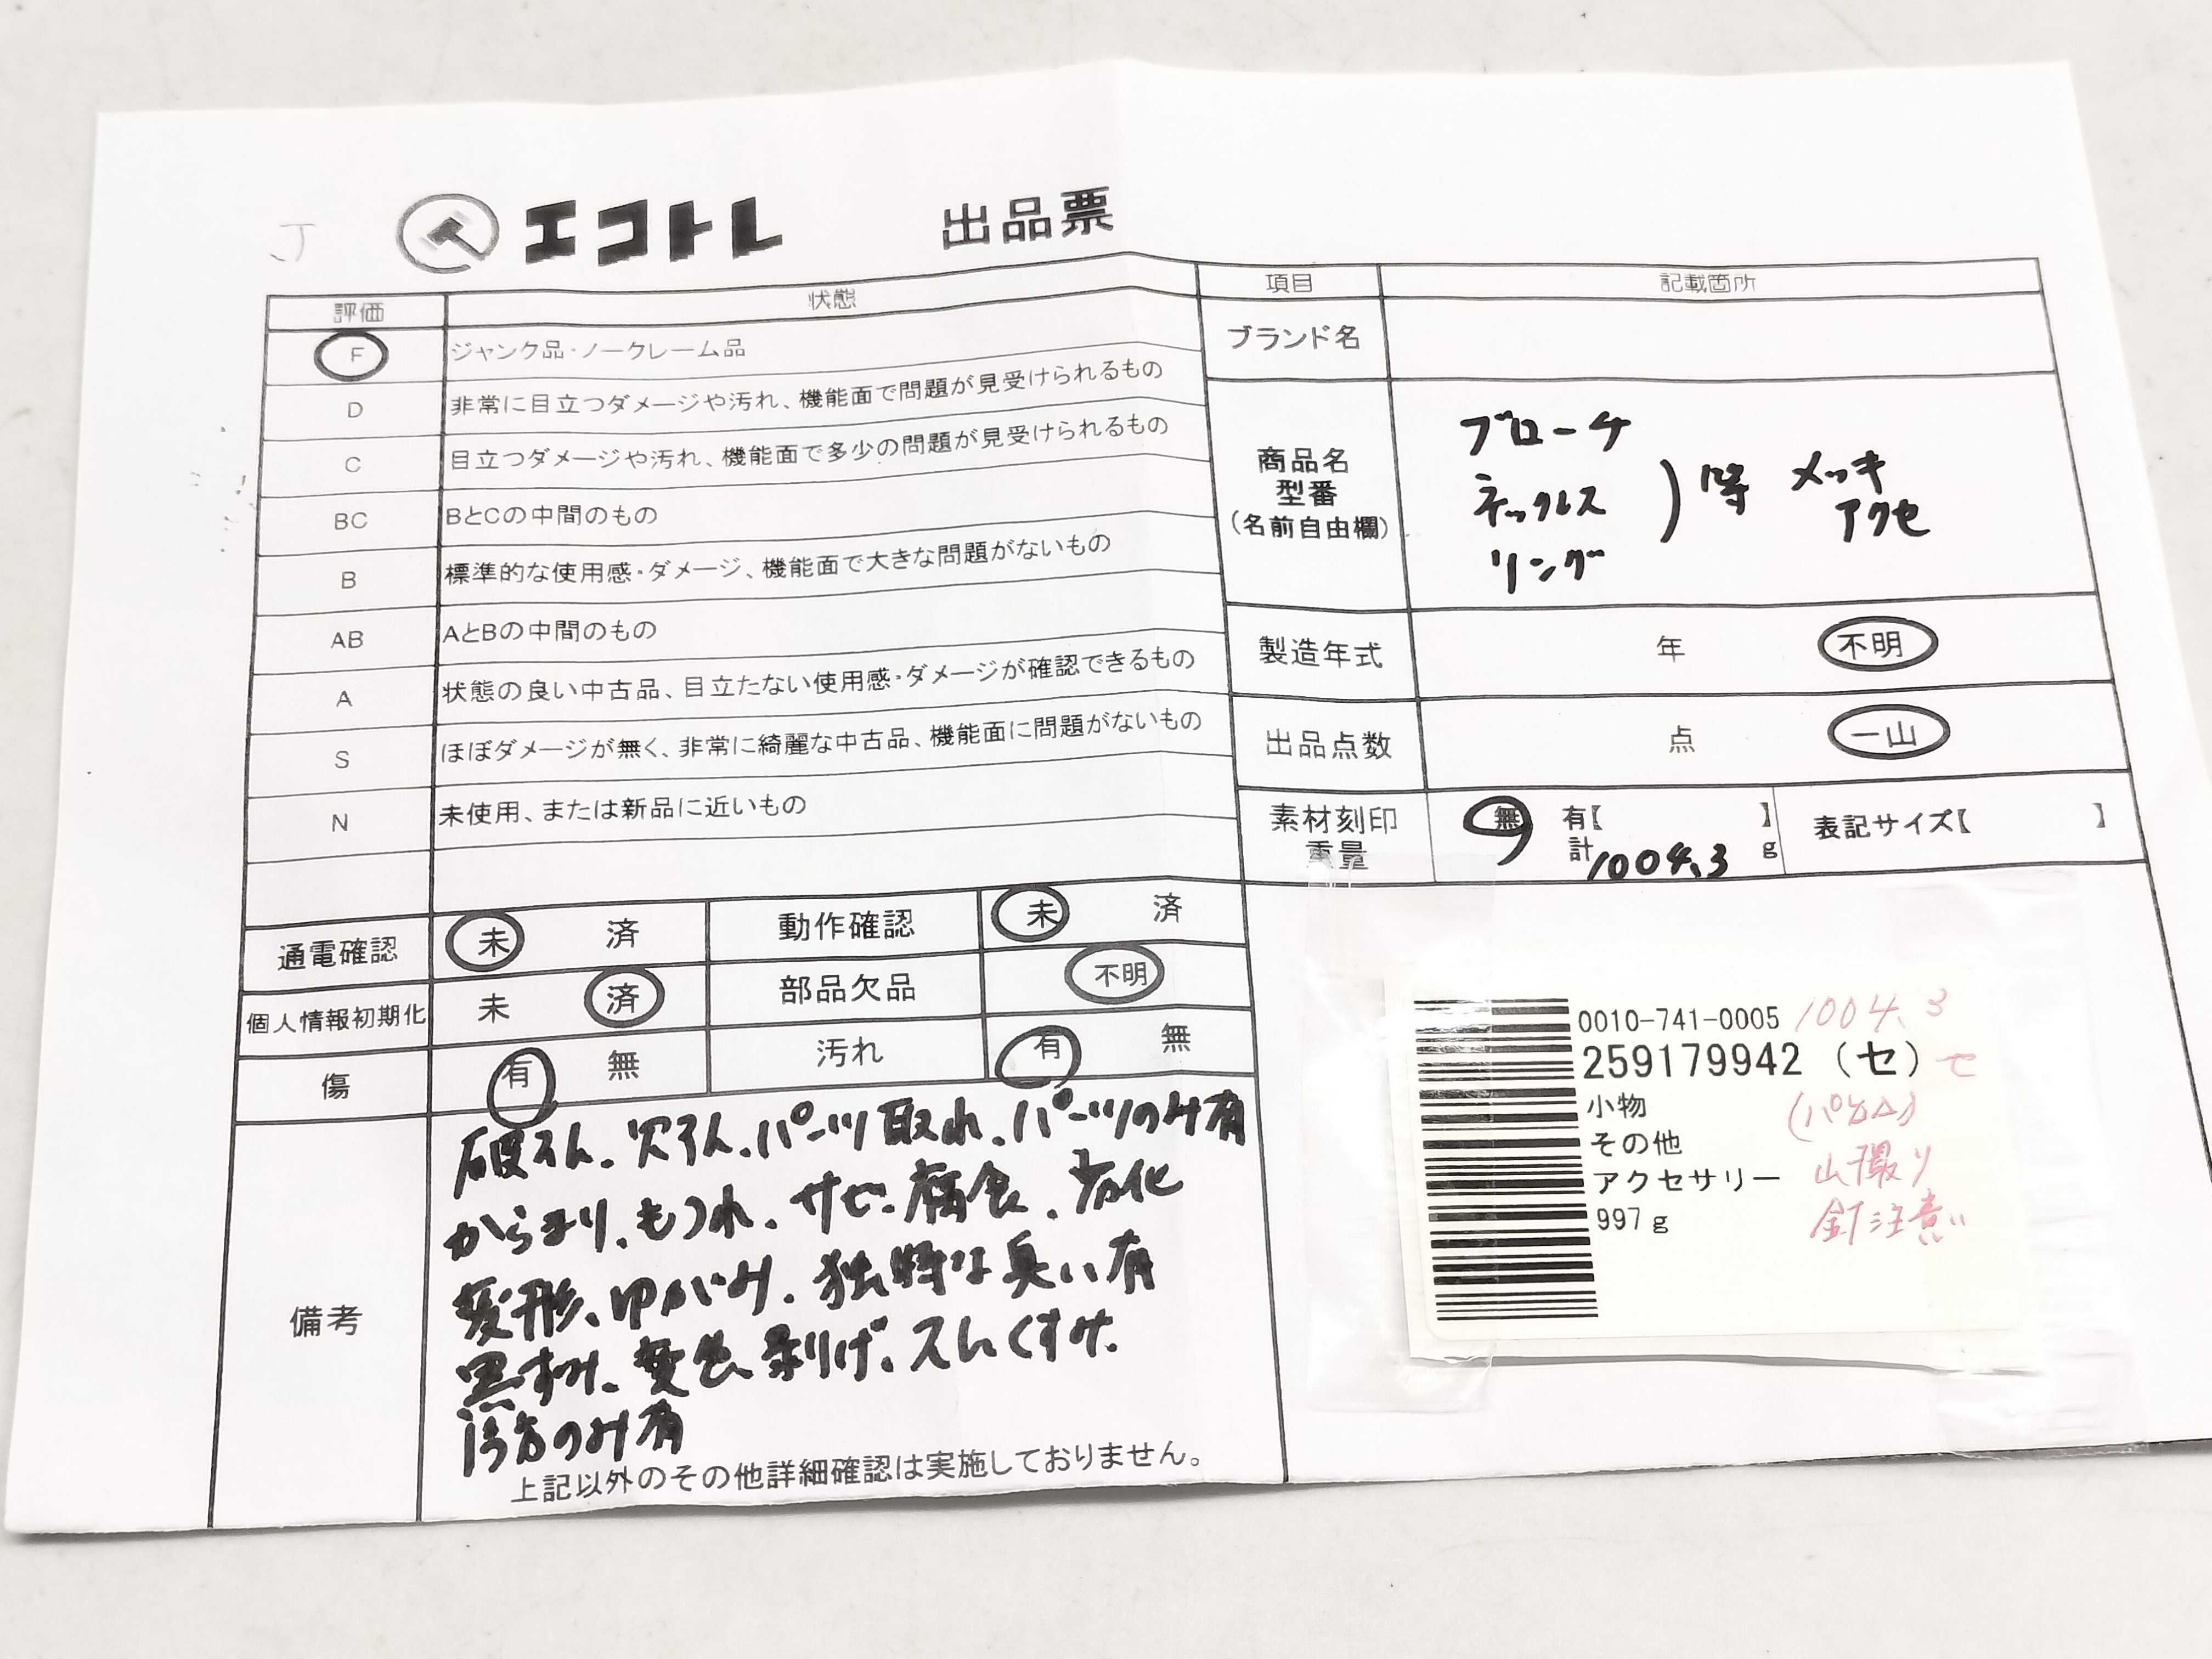 J
エコトレ 出品票
評価 状態
F ジャンク品・ノークレーム品
D 非常に目立つダメージや汚れ、機能面で問題が見受けられるもの
C 目立つダメージや汚れ、機能面で多少の問題が見受けられるもの
BC BとCの中間のもの
B 標準的な使用感・ダメージ、機能面で大きな問題がないもの
AB AとBの中間のもの
A 状態の良い中古品、目立たない使用感・ダメージが確認できるもの
S ほぼダメージが無く、非常に綺麗な中古品、機能面に問題がないもの
N 未使用、または新品に近いもの
通電確認 未 済 動作確認 未 済
個人情報初期化 未 済 部品欠品 不明
傷 有 無 汚れ 有 無
備考
破そん、欠そん、パーツ取れ、パーツのみ有
からまり、もつれ、サビ、腐食、劣化
変形、ゆがみ、独特な臭い有
黒ずみ、変色、剥げ、スレ、くすみ、
片方のみ有
上記以外のその他詳細確認は実施しておりません。
項目 記載箇所
ブランド名
商品名
型番
(名前自由欄)
ブローチ
ネックレス
リング
)等 メッキ
アクセ
製造年式 年 不明
出品点数 点 一山
素材刻印 無 有【 】 表記サイズ【 】
重量 計 1004.3 g
0010-741-0005 1004.3
259179942 (セ) セ
小物
その他
アクセサリー 山撮り
997g 針注意